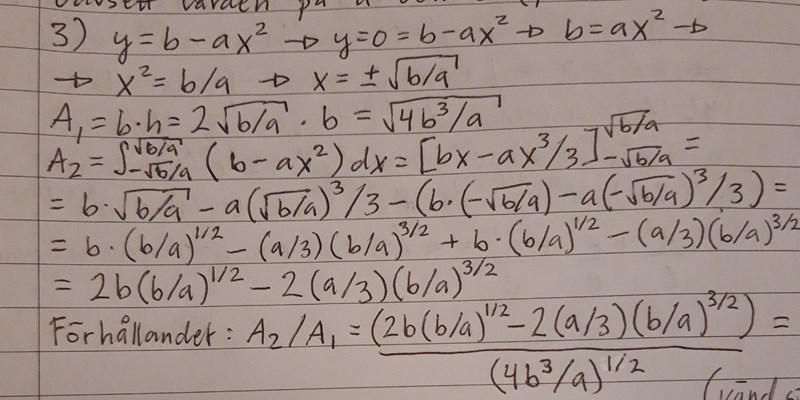 3) y=b-ax² → y=0=b-ax² → b=ax² →
→ x²=b/a → x=±√(b/a)
A₁=b·h=2√(b/a)·b=√(4b³/a)
A₂=∫_{-√(b/a)}^{√(b/a)}(b-ax²)dx=[bx-ax³/3]_{-√(b/a)}^{√(b/a)}=
=b·√(b/a)-a(√(b/a))³/3-(b·(-√(b/a))-a(-√(b/a))³/3)=
=b·(b/a)^{1/2}-(a/3)(b/a)^{3/2}+b·(b/a)^{1/2}-(a/3)(b/a)^{3/2}
=2b(b/a)^{1/2}-2(a/3)(b/a)^{3/2}
Förhållandet: A₂/A₁=(2b(b/a)^{1/2}-2(a/3)(b/a)^{3/2})=
(4b³/a)^{1/2}
(vänd